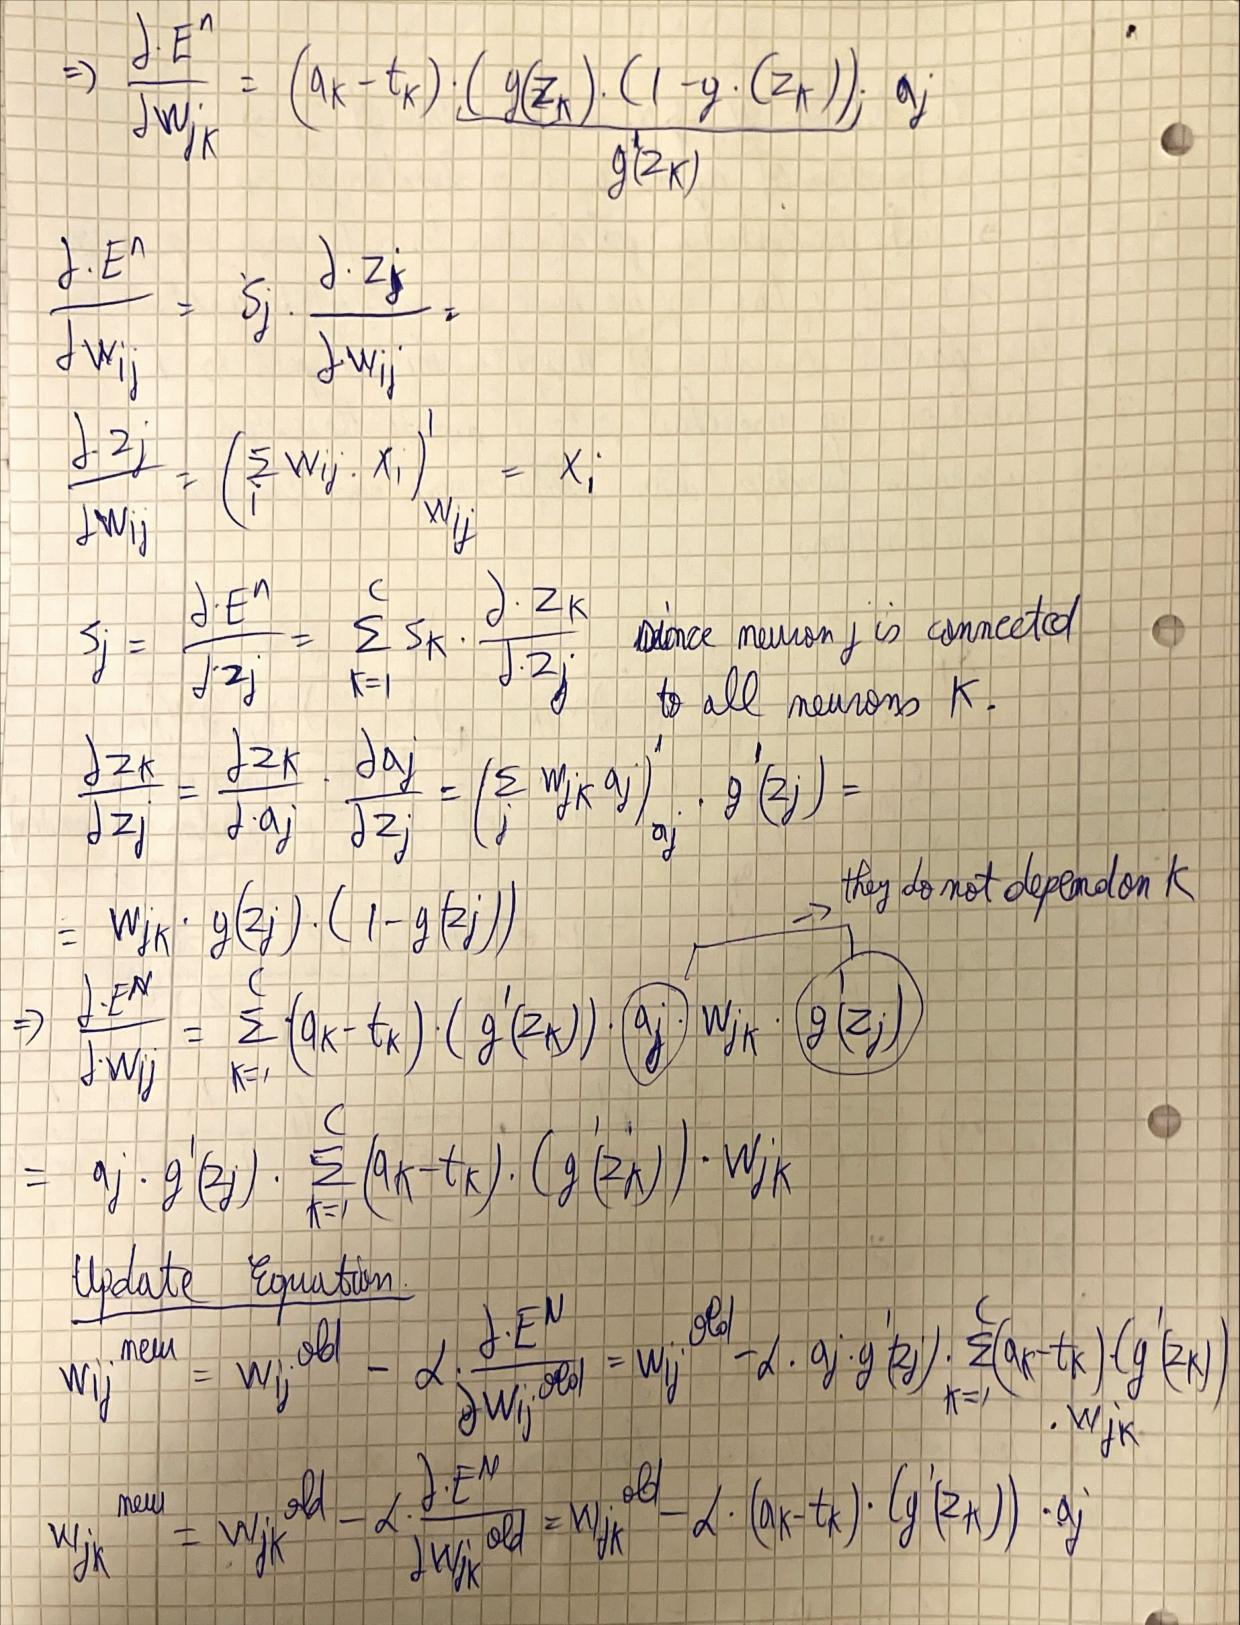 => ∂·Eⁿ/∂w_jk = (a_k − t_k)·(g(z_k)·(1 − g·(z_k))·a_j
g'(z_k)
∂·Eⁿ/∂w_ij = δ_j · ∂·z_j/∂·w_ij =
∂·z_j/∂w_ij = (Σ_i w_ij · x_i)'_w_ij = x_i
δ_j = ∂·Eⁿ/∂·z_j = Σ_{k=1}^{C} δ_k · ∂·z_k/∂·z_j since neuron j is connected
to all neurons k.
∂z_k/∂z_j = ∂z_k/∂·a_j · ∂a_j/∂z_j = (Σ_j w_jk a_j)'_a_j · g'(z_j) =
-> they do not depend on k
= w_jk · g(z_j)·(1 − g(z_j))
=> ∂·E^N/∂·w_ij = Σ_{k=1}^{C} (a_k − t_k)·(g'(z_k))·a_j · w_jk · g'(z_j)
= a_j · g'(z_j) · Σ_{k=1}^{C} (a_k − t_k)·(g'(z_k))·w_jk
Update Equation.
w_ij^new = w_ij^old − α · ∂·E^N/∂w_ij^old = w_ij^old − α · a_j · g'(z_j) · Σ_{k=1}^{C} (a_k − t_k)·(g'(z_k))
· w_jk
w_jk^new = w_jk^old − α · ∂·E^N/∂w_jk^old = w_jk^old − α · (a_k − t_k)·(g'(z_k))·a_j